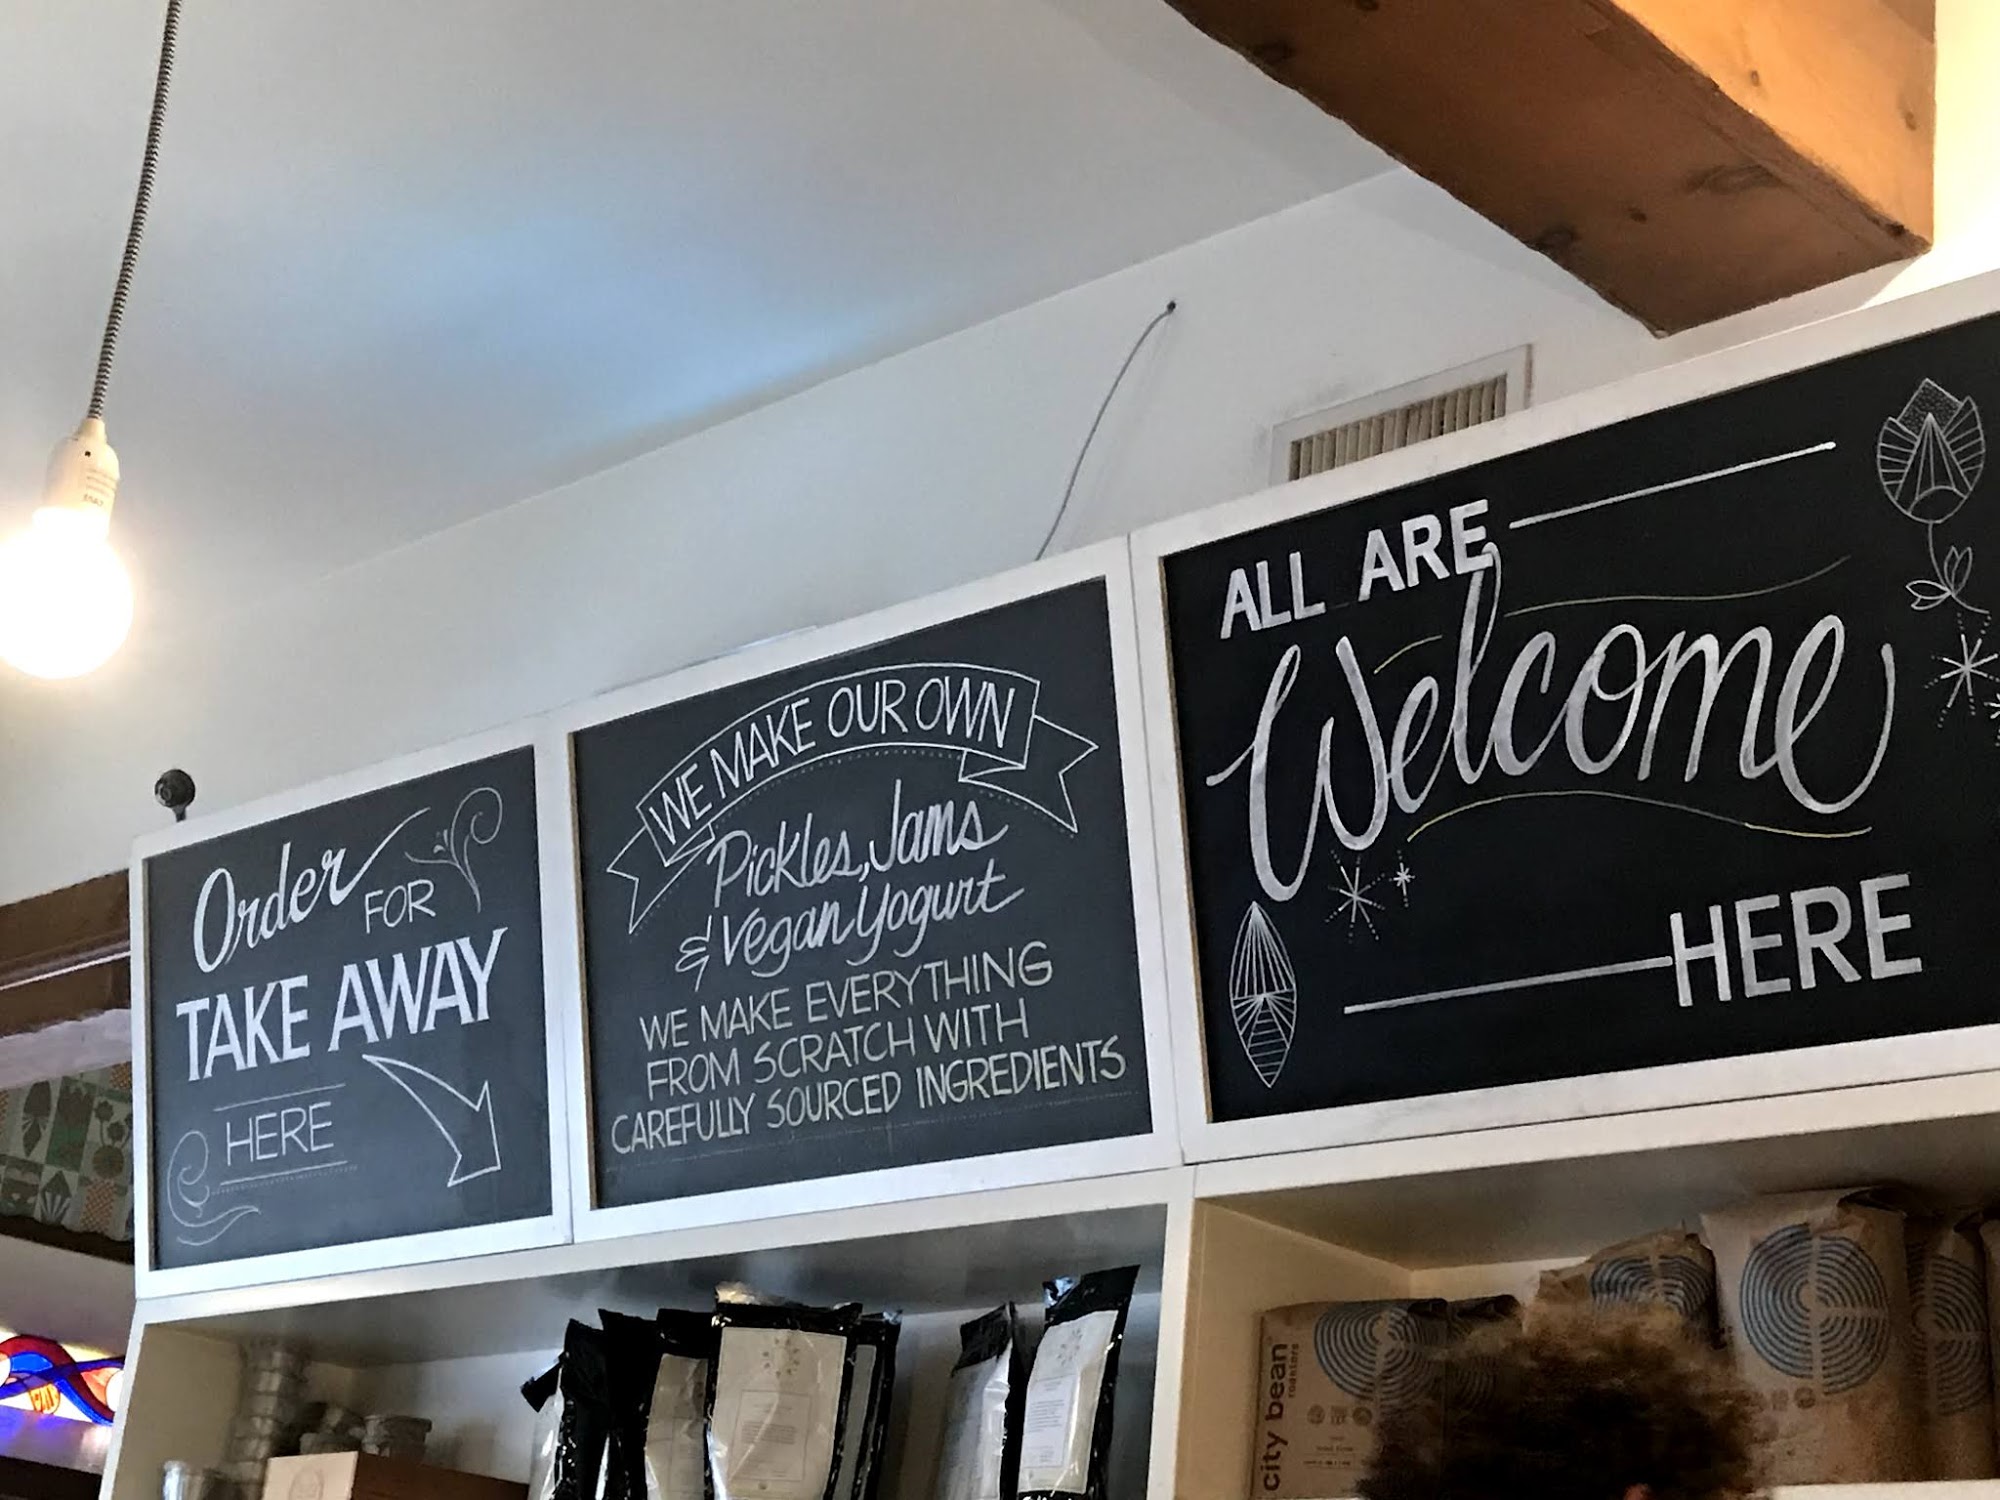 Order
FOR
TAKE AWAY
HERE
WE MAKE OUR OWN
Pickles, Jams
& Vegan Yogurt
WE MAKE EVERYTHING
FROM SCRATCH WITH
CAREFULLY SOURCED INGREDIENTS
ALL ARE
Welcome
HERE
city bean
roasters